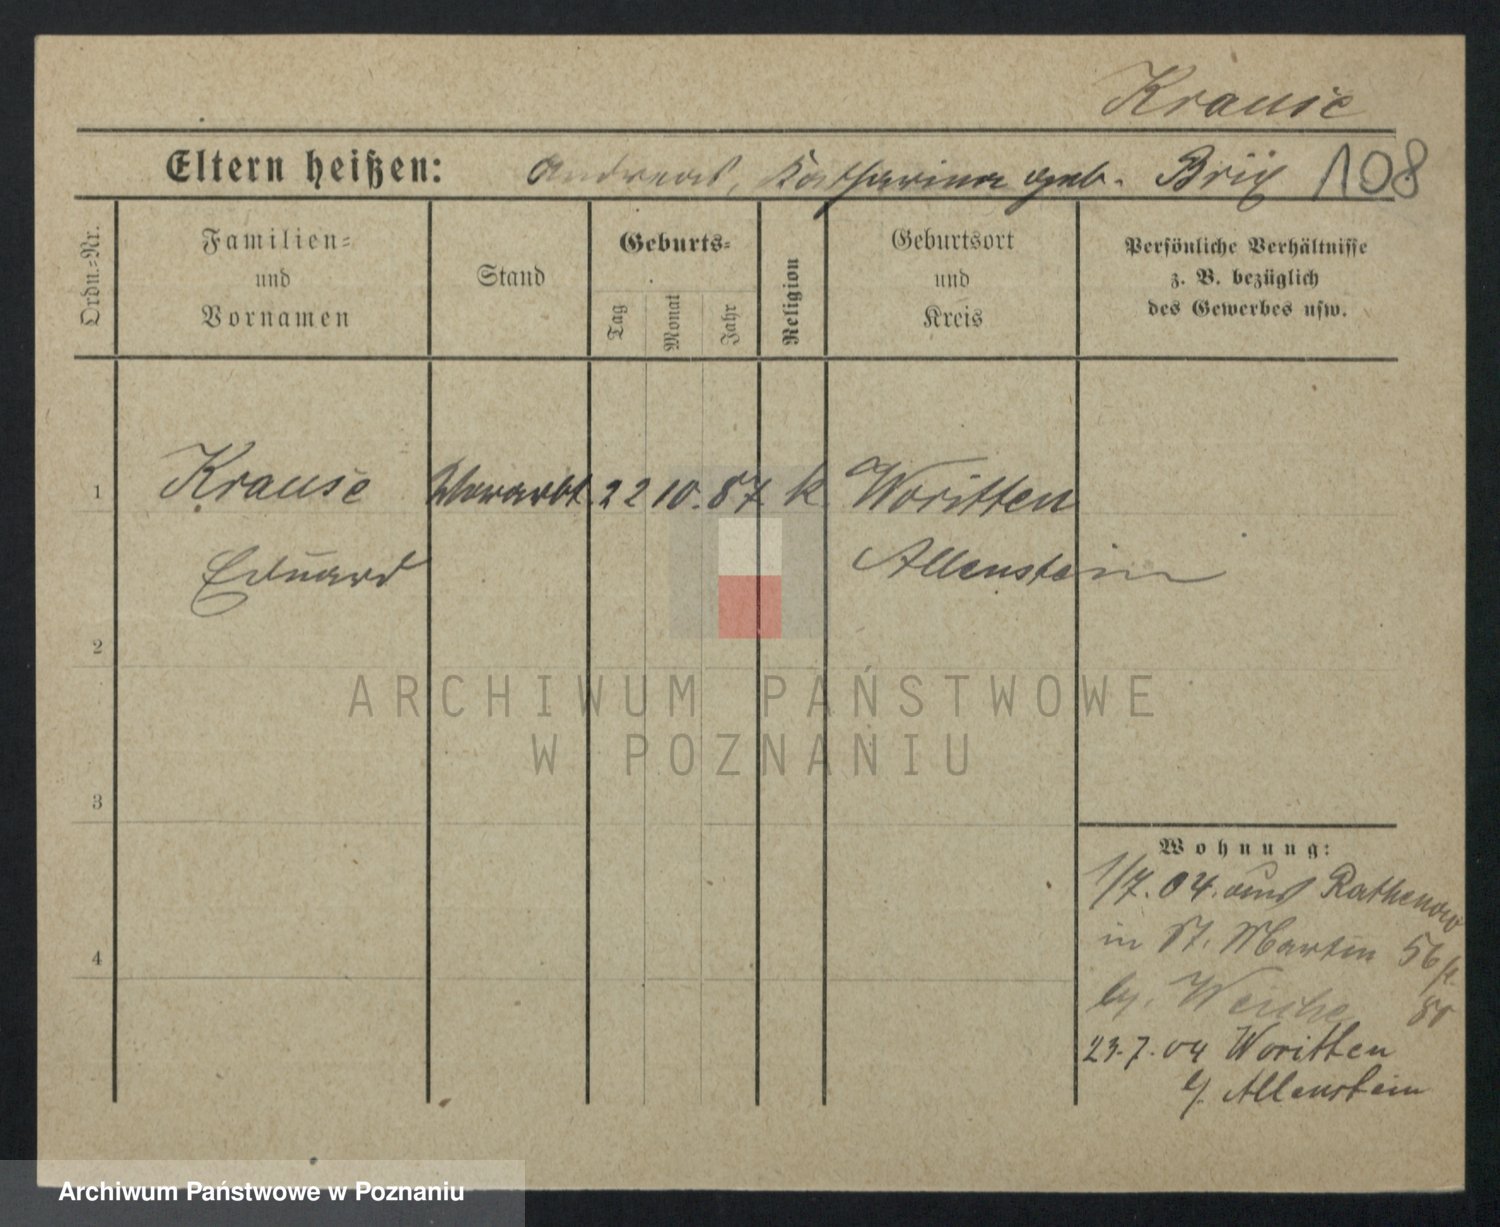 Krause
Eltern heißen: Andreas, Katharina geb. 108
Ordn.=Nr.
Familien=
und
Vornamen
Stand
Geburts=
Tag
Monat
Jahr
Religion
Geburtsort
und
Kreis
Persönliche Verhältnisse
z. B. bezüglich
des Gewerbes usw.
1 Krause 22 10. 87 k Woritten
Eduard Allenstein
2
ARCHIWUM PAŃSTWOWE
W POZNANIU
3
4
Wohnung:
1/7. 04. aus Rathenow
in St. Martin 56
by.
23. 7. 04 Woritten
b/ Allenstein
Archiwum Państwowe w Poznaniu